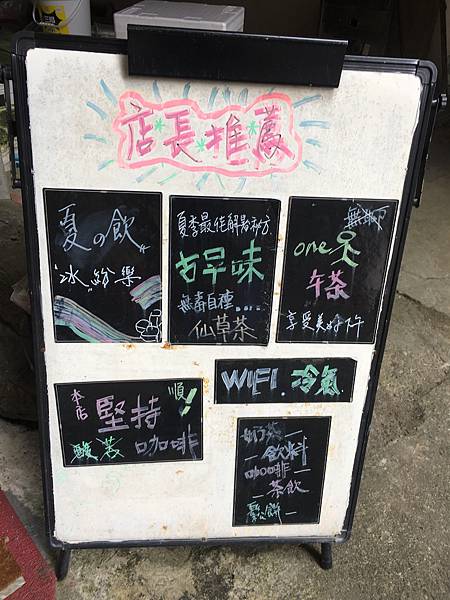 店長推薦
夏の飲
"冰"紛樂
夏季最佳解暑秘方
古早味
無毒自種....
仙草茶
無
one人
午茶
享受美好下午
WIFI.冷氣
本店
堅持
順!!
酸苦
咖啡
奶茶
飲料
咖啡
茶飲
鬆餅